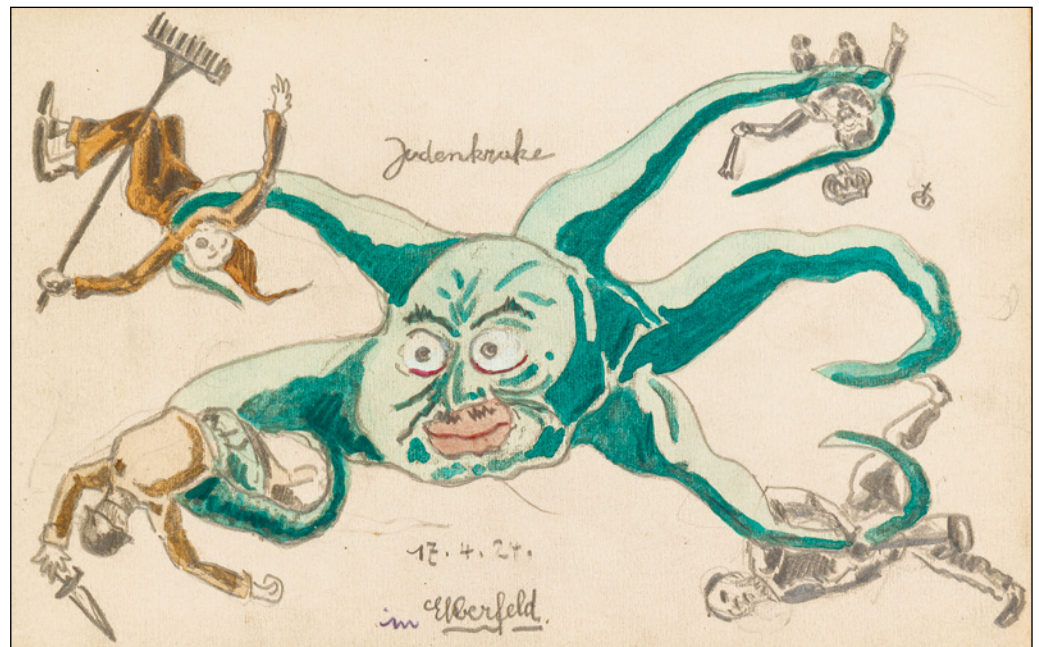 Judenkrake
17.4.24.
in Elberfeld.